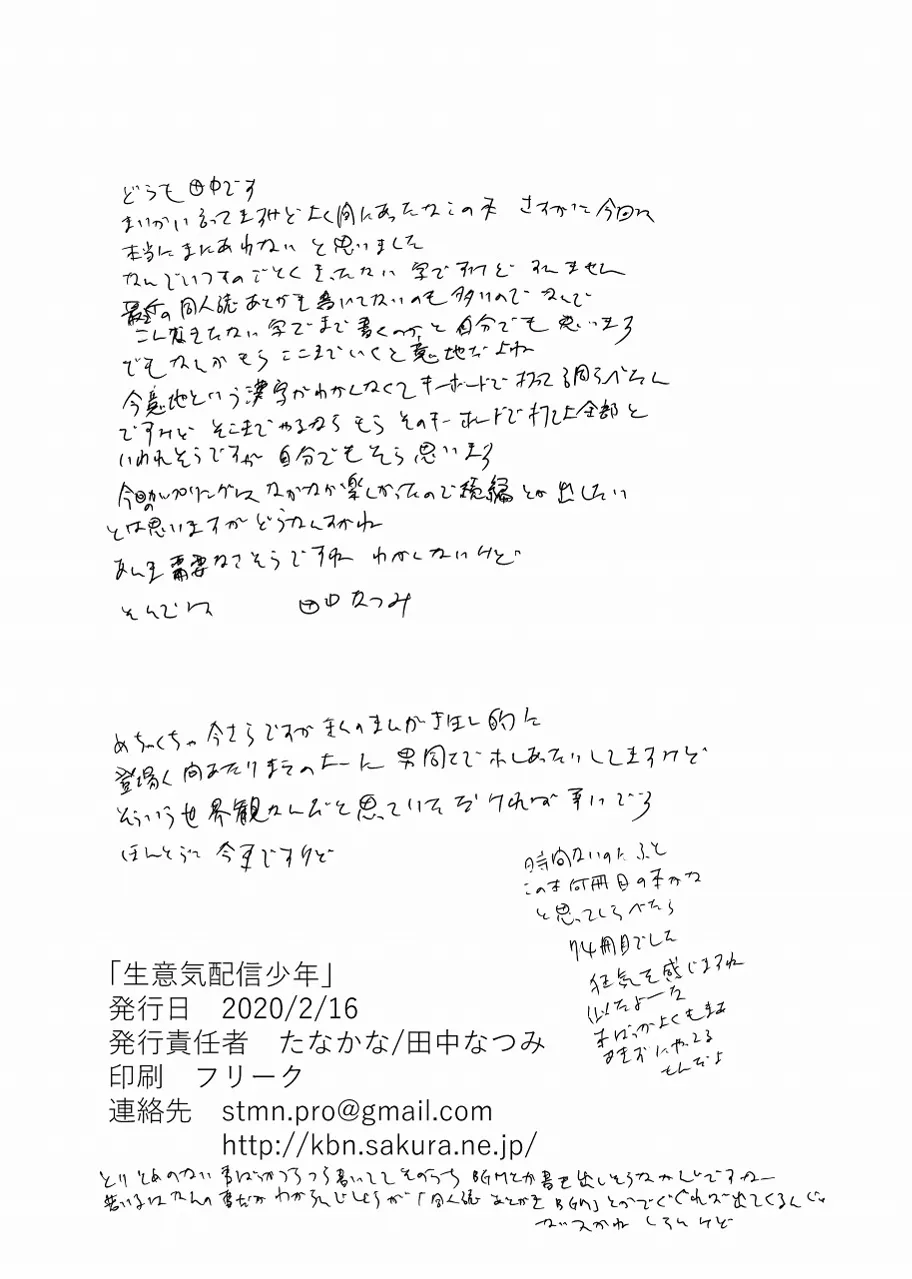 どうも田中です
まいかい言ってますけどよく間にあったなこの本 さすがに今回は
本当にまにあわない と思いました
なんでいつものごとくきったない 字ですけど すいません
最近の同人誌あとがき書いてないのも多いので なんで
こんなきたない字でまで書くのか と自分でも思います
でもなんかもう ここまでいくと意地だよね
今意地という漢字がわかんなくてキーボードで打って調べたん
ですけど そこまでやるなら もう そのキーボードで打てよ全部と
いわれそうですが 自分でもそう思います
今回のカップリングは なかなか楽しかったので続編とか出したい
とは思いますがどうなんすかね
あんま需要なさそうですね わかんないけど
そんでは 田中なつみ
めちゃくちゃ今さらですが ぼくのまんが
登場 男同士で してますけど
そういう世界観なんだと思っていただければ幸いです
ほんとうに 今更ですけど
時間ないのにふと
この本何冊目の本かな
と思ってしらべたら
74冊目でした
狂気を感じますね
似たよーな
本ばっかよくもまあ
あきずにやってる
もんだよ
「生意気配信少年」
発行日 2020/2/16
発行責任者 たなかな/田中なつみ
印刷 フリーク
連絡先 stmn.pro@gmail.com
http://kbn.sakura.ne.jp/
とりとめのない事ばっかつらつら書いててそのうち BGMとか書き出しそうなかんじですねー
若い子には なんの事だか わからんでしょうが 「同人誌 あとがき BGM」とかでぐぐれば出てくるんじゃ
ないすかね しらんけど